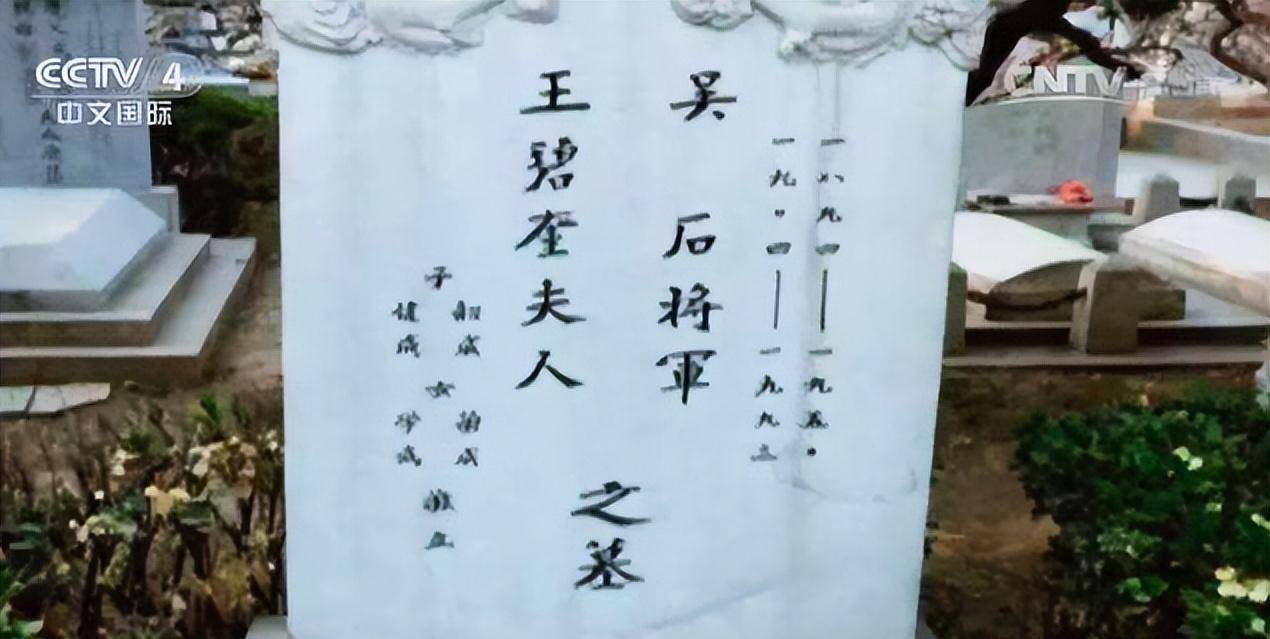 CCTV 4
中文国际
CNTV
一八九四——一九五〇
一九〇四——一九九三
吴 石将軍
王碧奎夫人
之墓
子
韶成
健成
女
成
学成
立